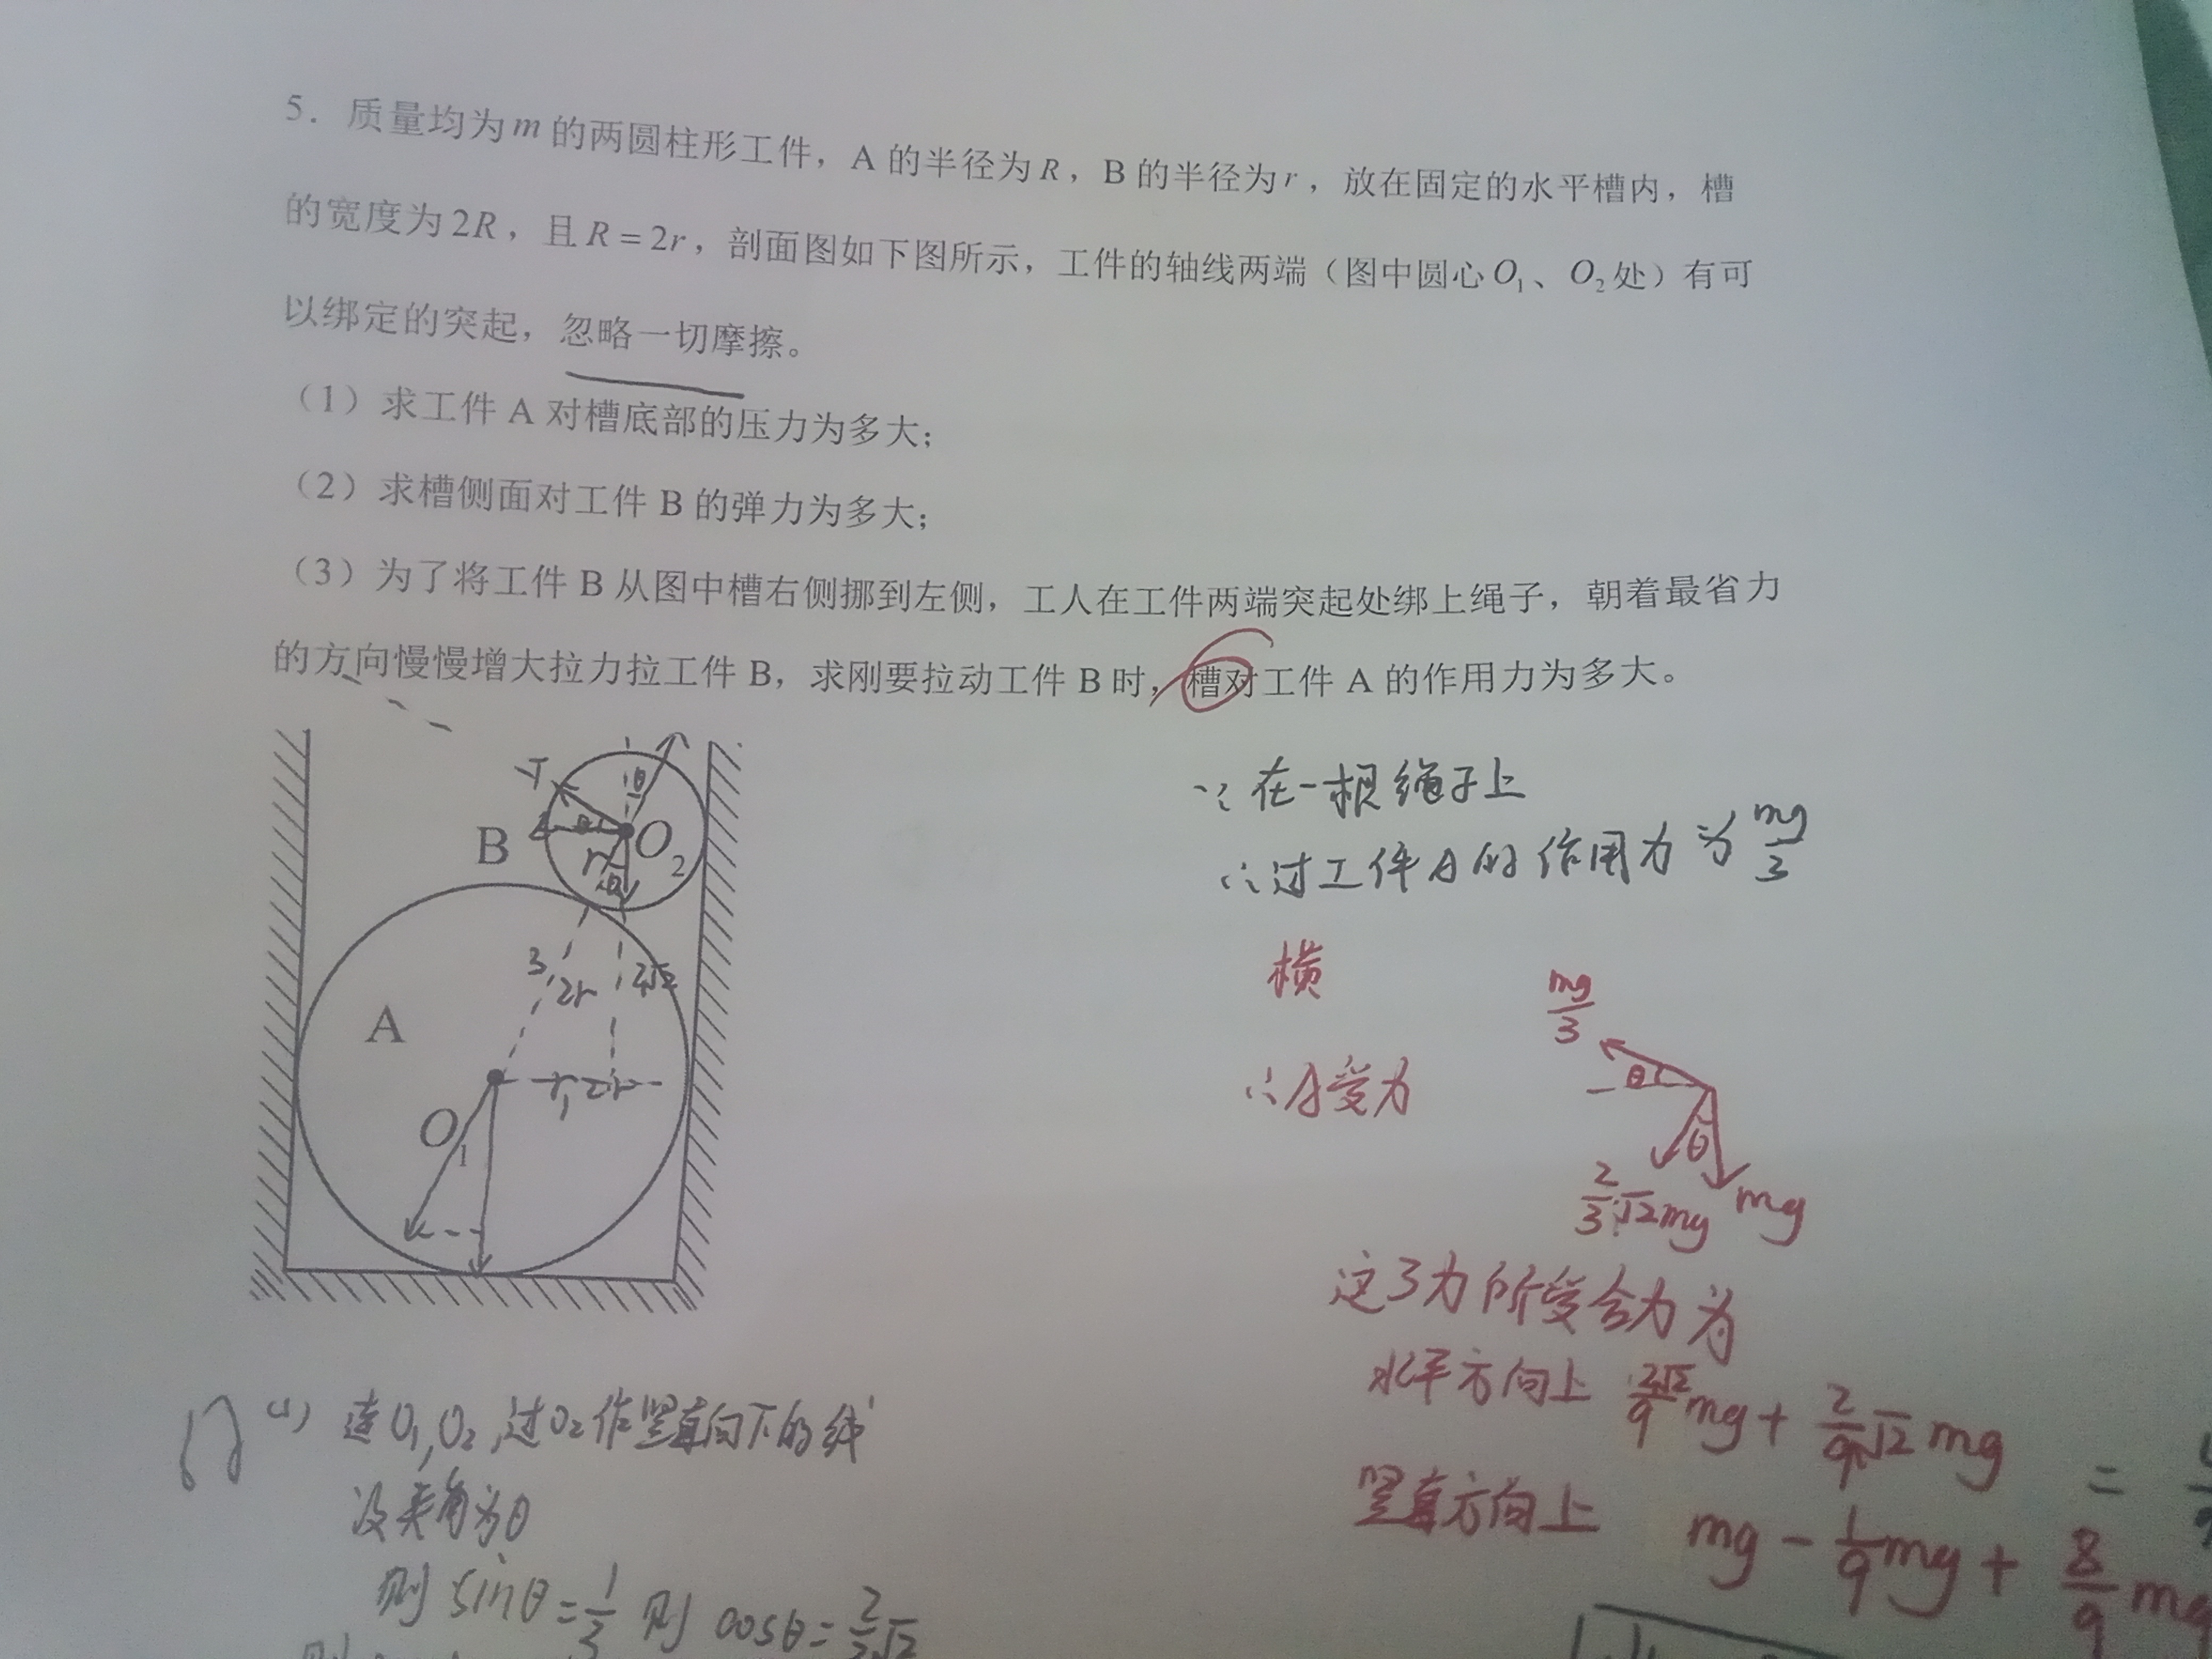 5. 质量均为m的两圆柱形工件，A 的半径为R，B 的半径为r，放在固定的水平槽内，槽
的宽度为2R，且R=2r，剖面图如下图所示，工件的轴线两端（图中圆心O₁、O₂处）有可
以绑定的突起，忽略一切摩擦。
（1）求工件 A 对槽底部的压力为多大；
（2）求槽侧面对工件 B 的弹力为多大；
（3）为了将工件 B 从图中槽右侧挪到左侧，工人在工件两端突起处绑上绳子，朝着最省力
的方向慢慢增大拉力拉工件 B，求刚要拉动工件 B 时，槽对工件 A 的作用力为多大。
T
θ
θ
B
O₂
r
θ
3
2r
2√2
A
r,
2r
O₁
∵在一根绳子上
∴过工件A的作用力为mg/3
横
∴A受力
mg/3
θ
θ
2/3√2mg
mg
这3力所受合力为
水平方向上 2√2/9 mg + 2/9√2 mg =
竖直方向上 mg - 1/9 mg + 8/9 mg
(1) 连O₁,O₂,过O₂作竖直向下的线
设夹角为θ
则 sinθ=1/3 则 cosθ=2/3√2
则